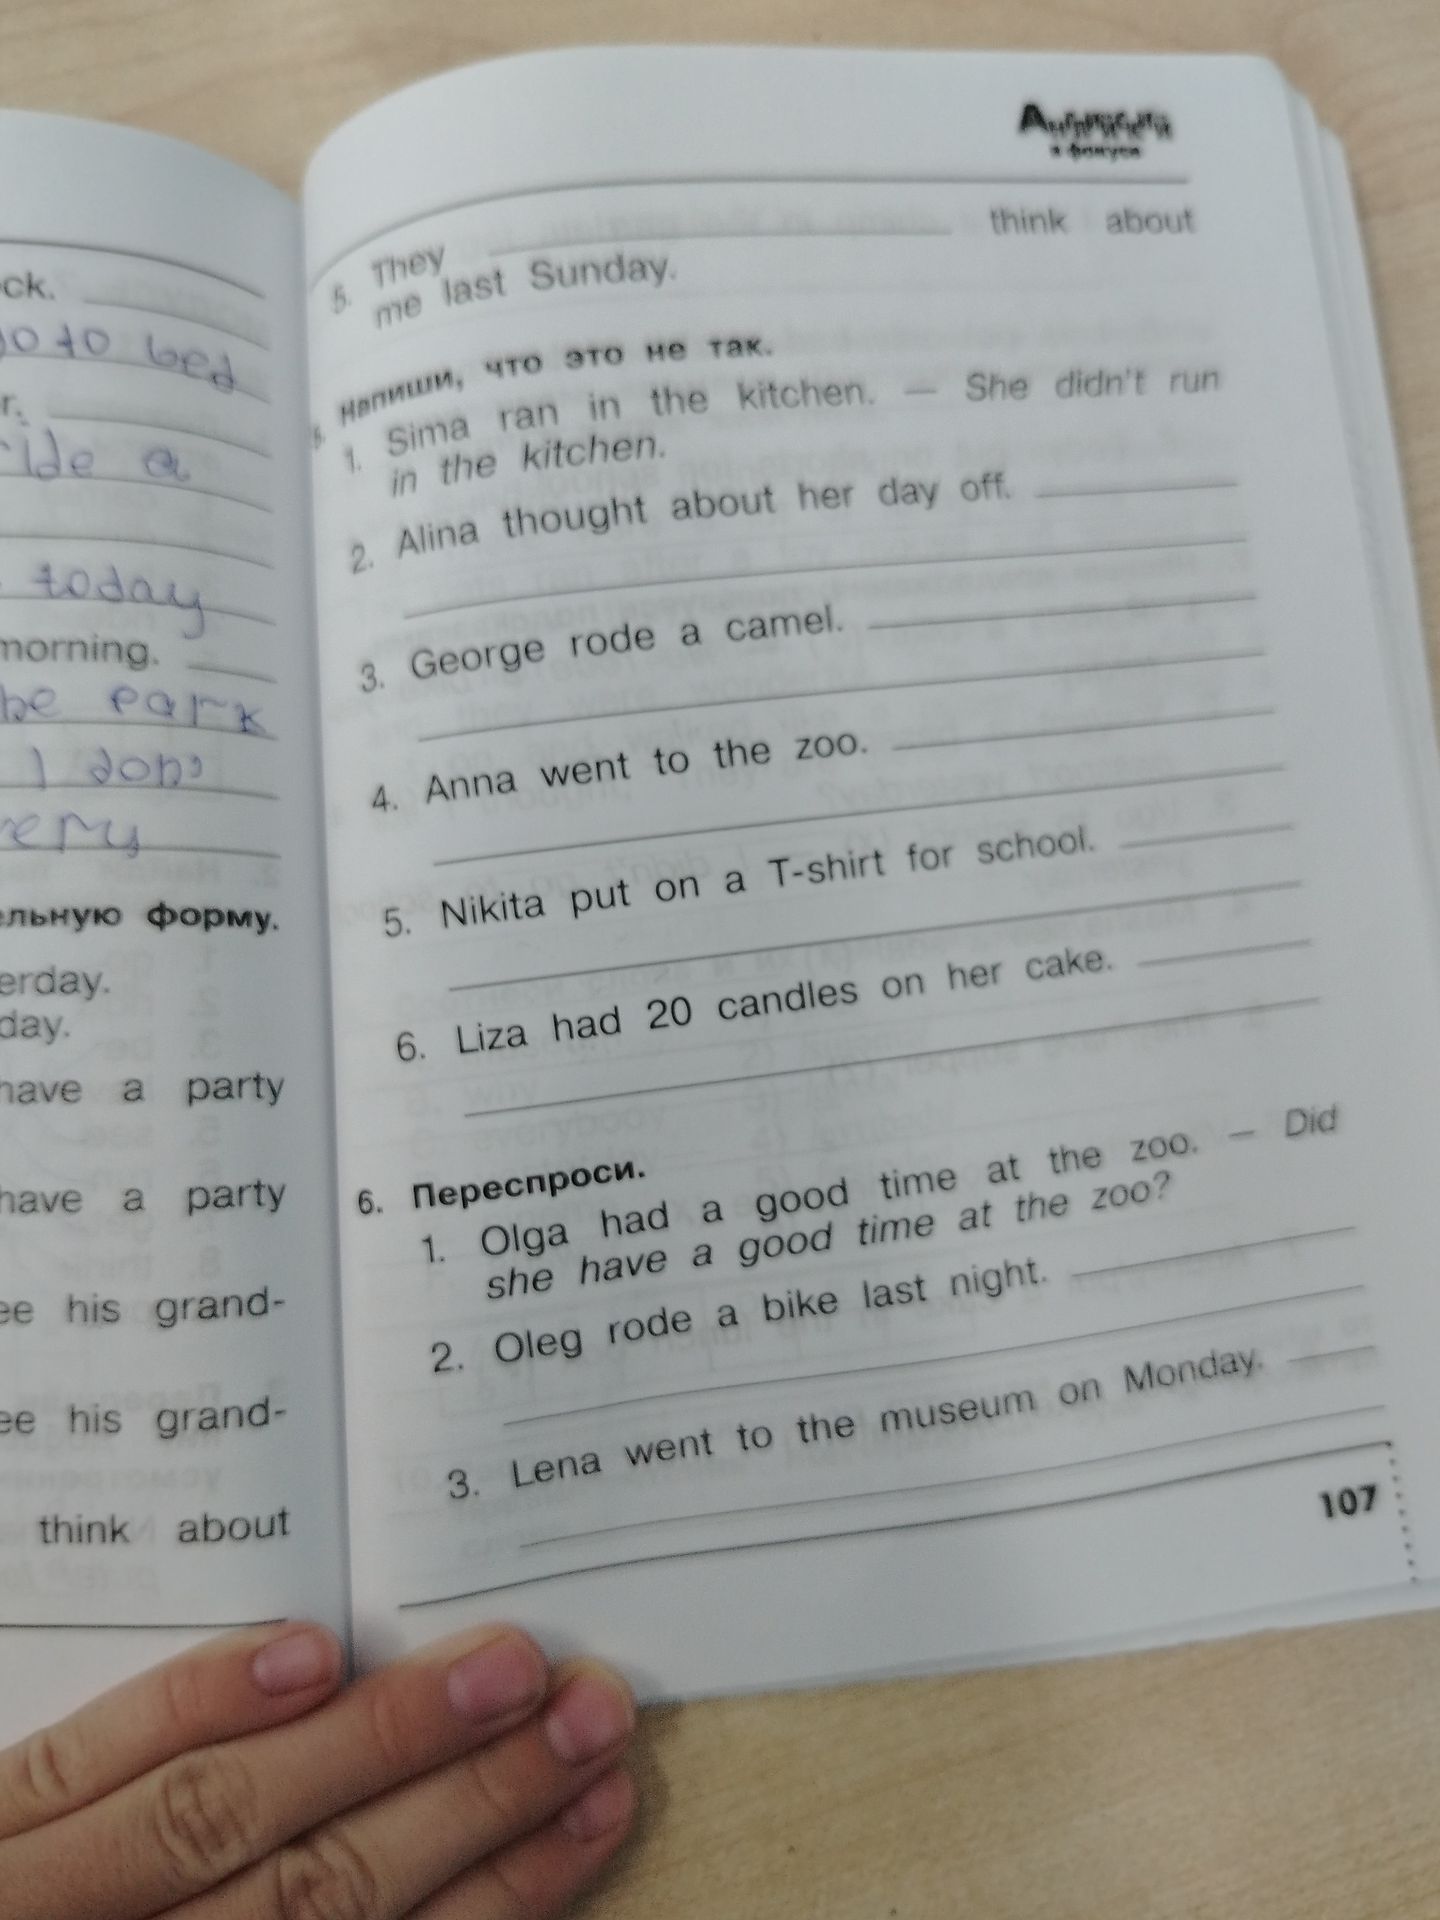 ck.
go to bed
r.
ride a
today
morning.
he park
I don'
very
ельную форму.
erday.
day.
have a party
have a party
ee his grand-
ee his grand-
think about
Английский
в фокусе
5. They think about
me last Sunday.
5. Напиши, что это не так.
1. Sima ran in the kitchen. — She didn't run
in the kitchen.
2. Alina thought about her day off.
3. George rode a camel.
4. Anna went to the zoo.
5. Nikita put on a T-shirt for school.
6. Liza had 20 candles on her cake.
6. Переспроси.
1. Olga had a good time at the zoo. — Did
she have a good time at the zoo?
2. Oleg rode a bike last night.
3. Lena went to the museum on Monday.
107